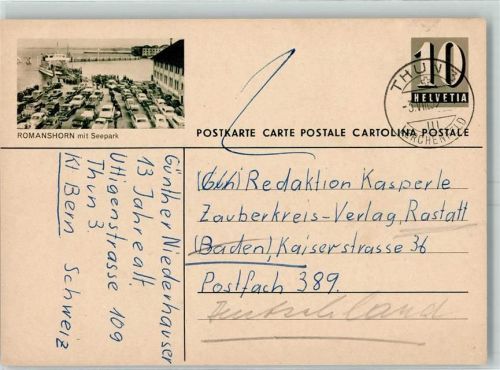 10
HELVETIA
THUN
ROMANSHORN mit Seepark
POSTKARTE CARTE POSTALE CARTOLINA POSTALE
Redaktion Kasperle
Zauberkreis-Verlag, Rastatt
(Baden), Kaiserstrasse 36
Postfach 389.
Deutschland
Günther Niederhauser
13 Jahre alt.
Uttigenstrasse 109
Thun 3.
Kt Bern Schweiz